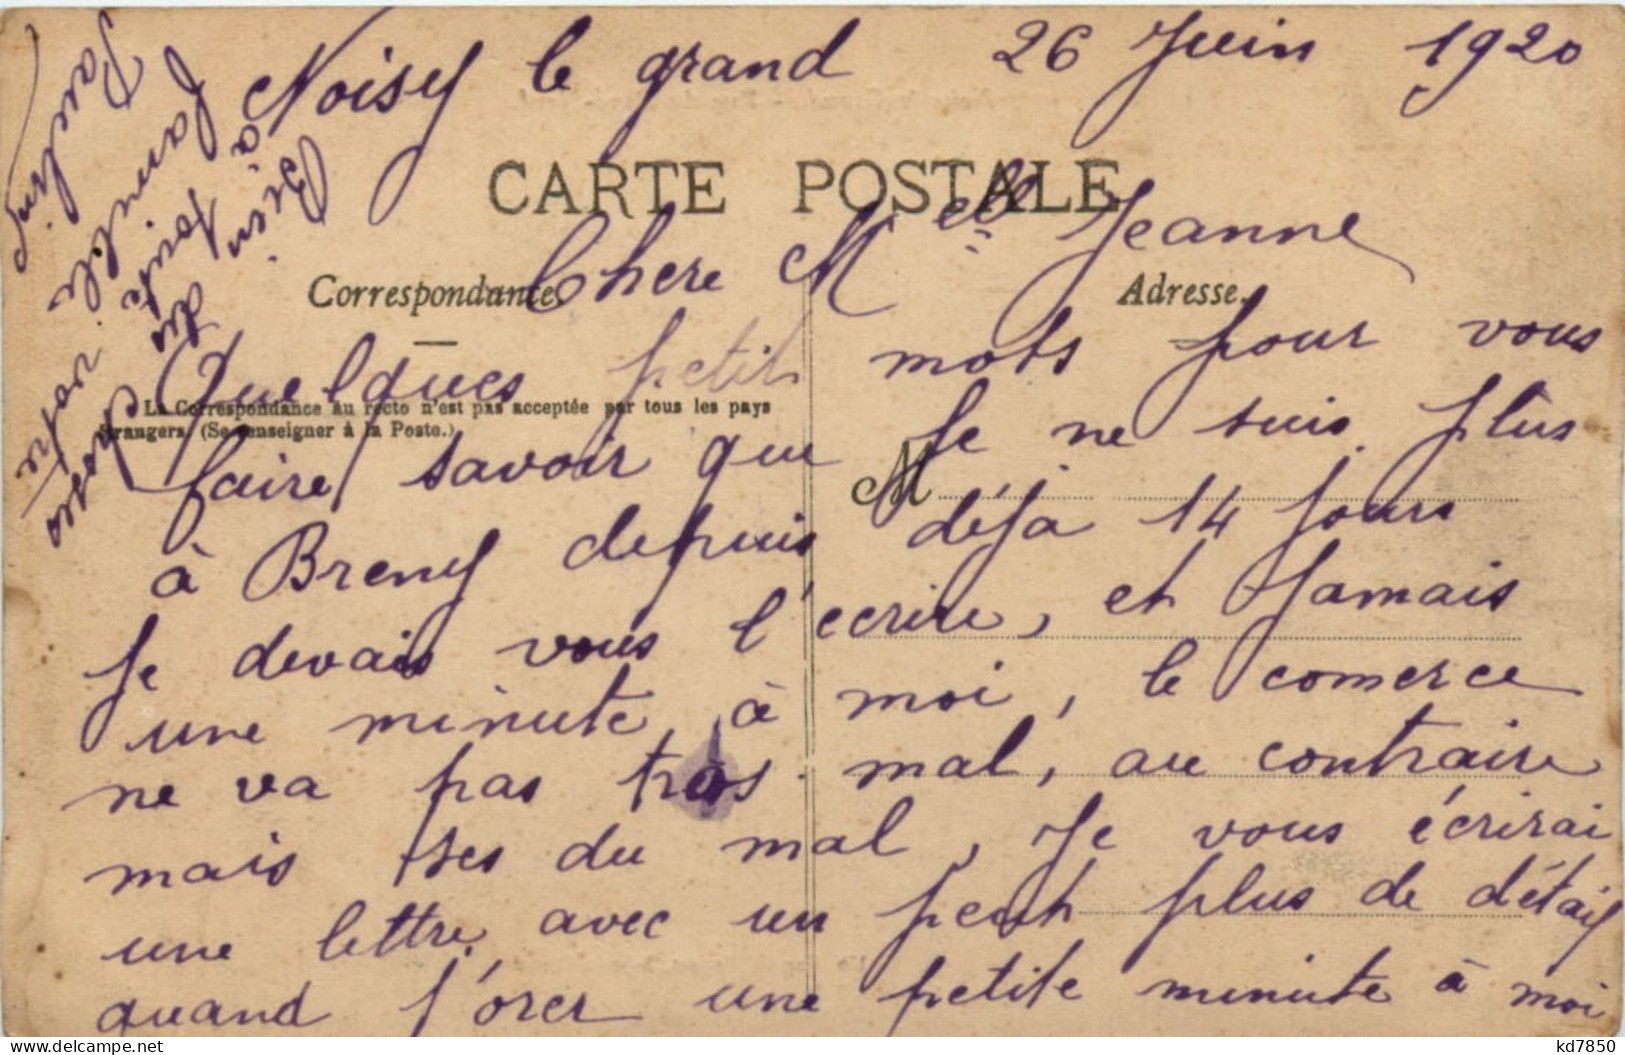 Noisy le grand 26 Juin 1920
CARTE POSTALE
Chere Melle Jeanne
Correspondance. Adresse.
Quelques petit mots pour vous
La Correspondance au recto n'est pas acceptée par tous les pays
étrangers (Se renseigner à la Poste.)
faire savoir que Je ne suis plus
M
à Breny depuis déja 14 Jours
Je devais vous l'ecrire, et Jamais
une minute à moi, le comerce
ne va pas tros mal, au contraire
mais tres du mal, Je vous écrirai
une lettre, avec un peut plus de détail
quand J'orer une petite minute à moi
Bien des choses
à toute votre
famille
Pauline
delcampe.net
kd7850